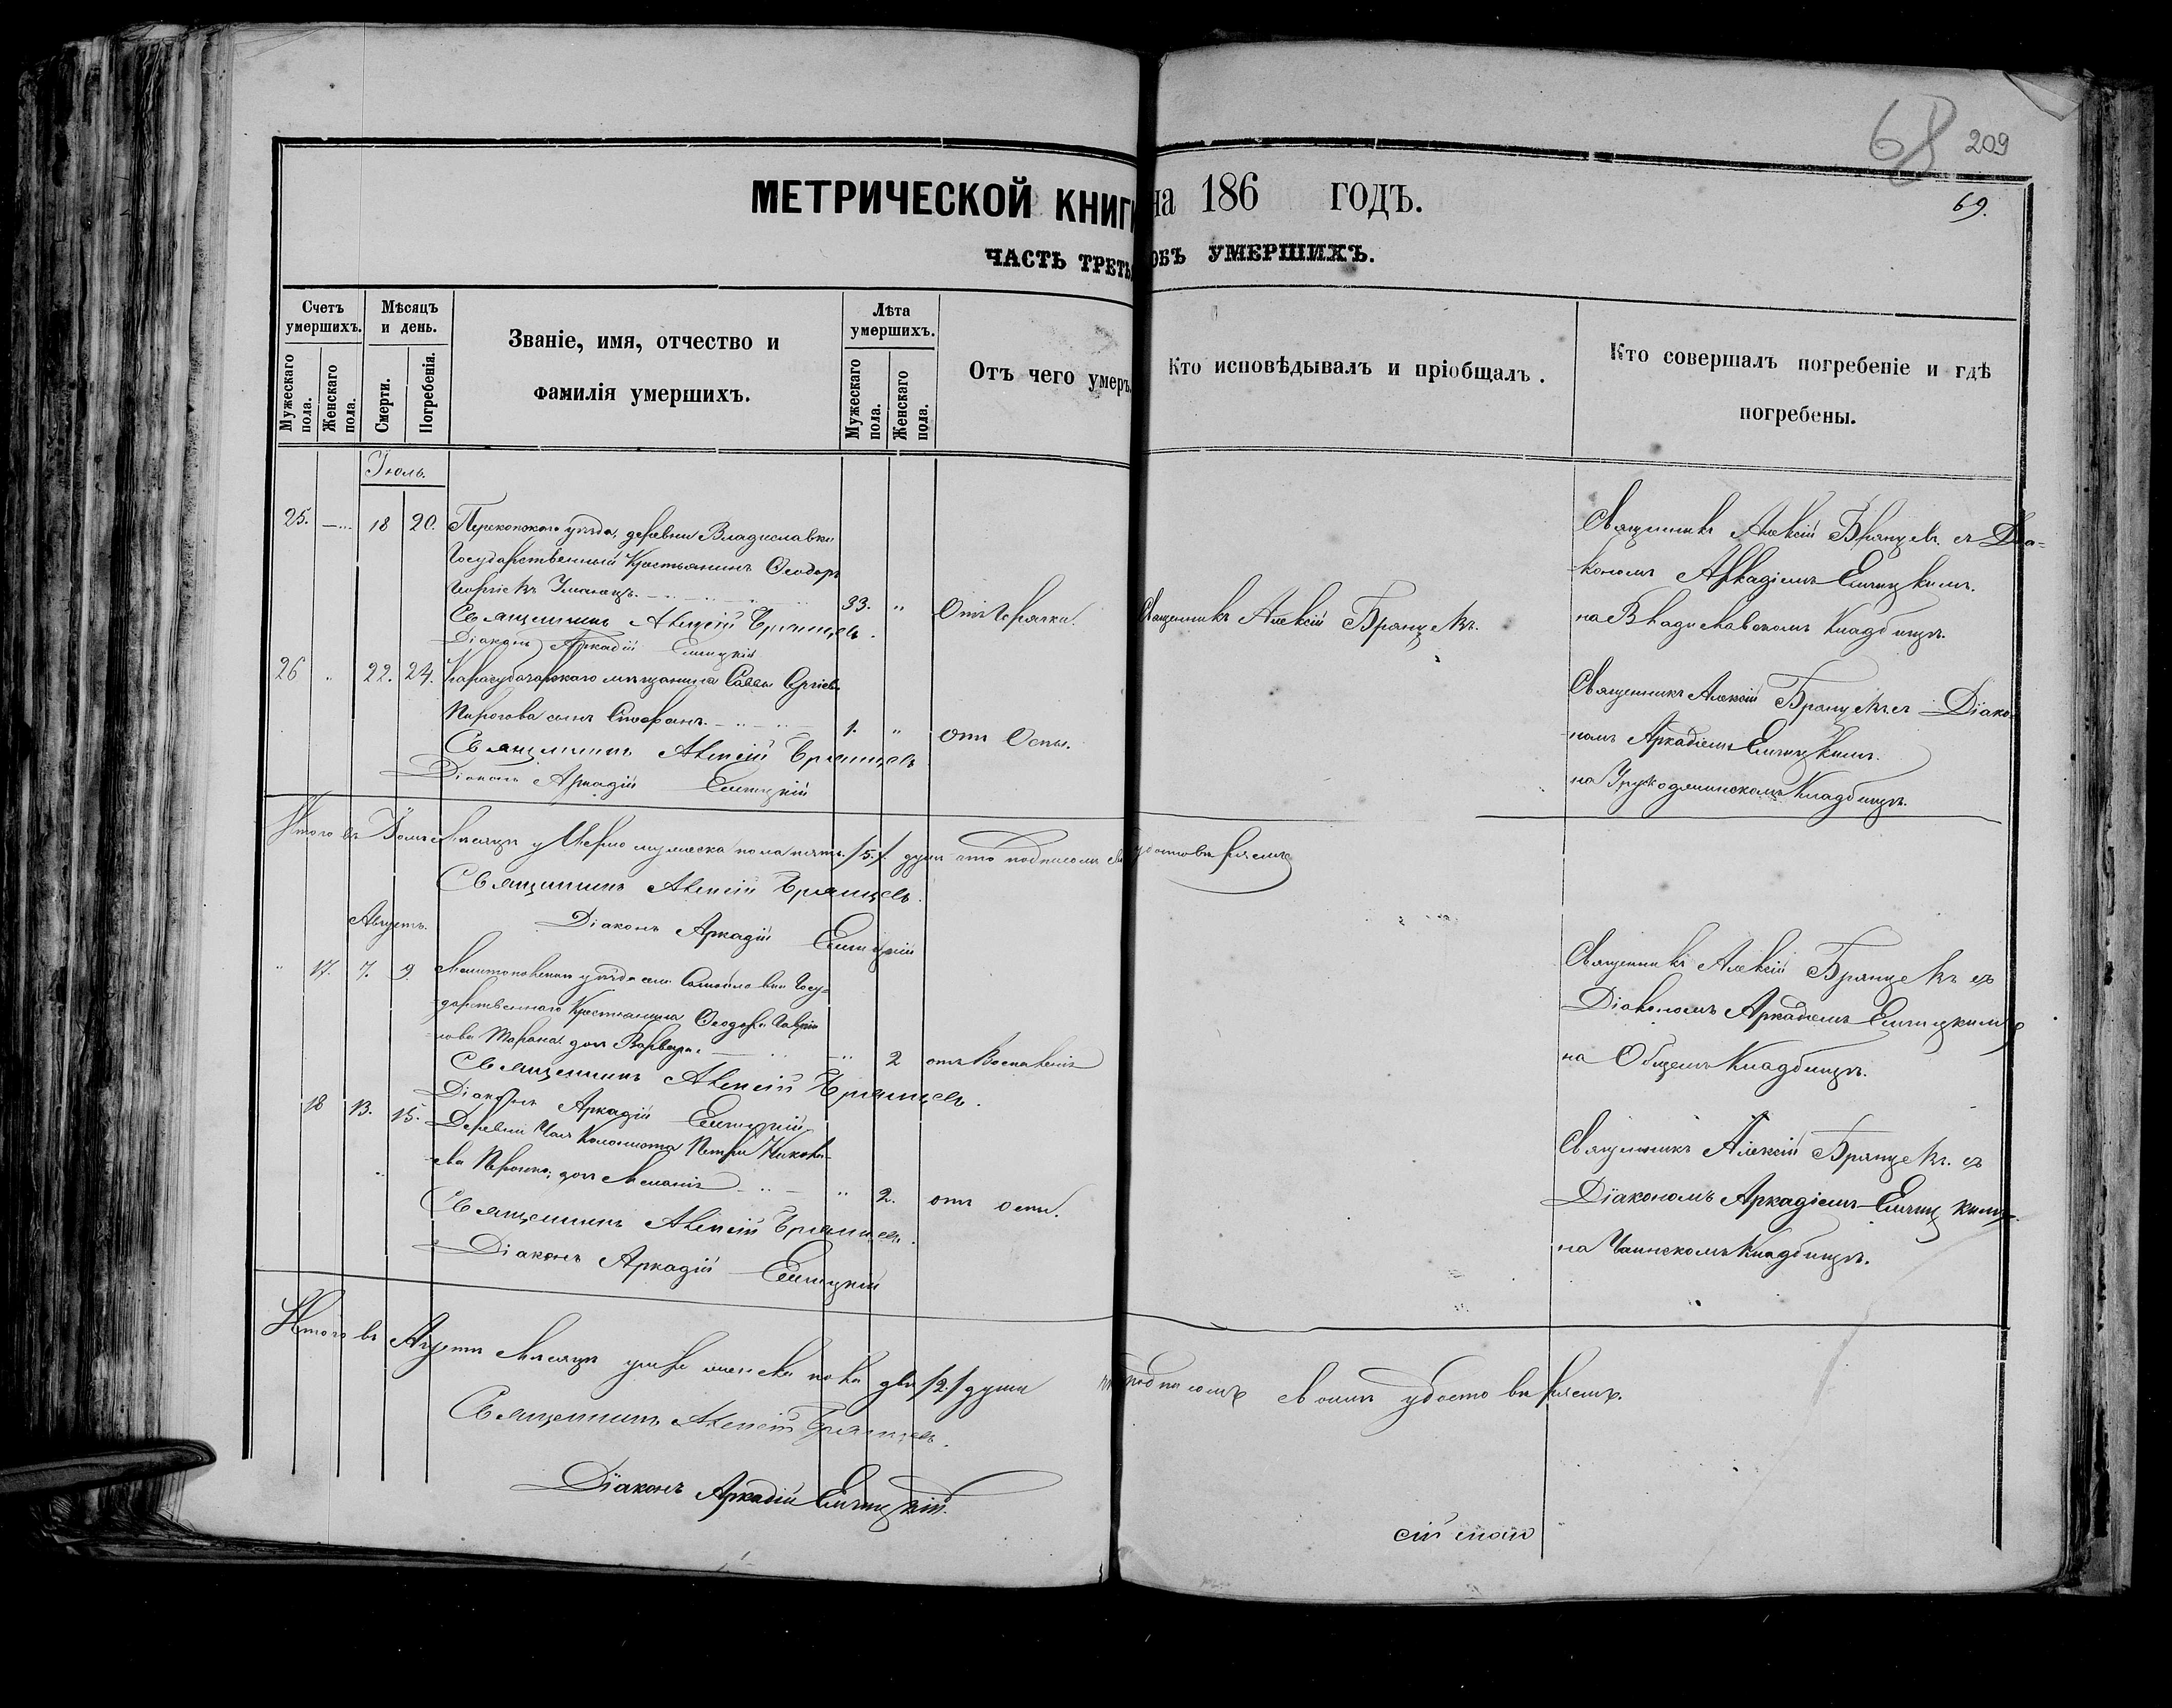 68 209
69.
МЕТРИЧЕСКОЙ КНИГИ на 186 ГОДЪ.
ЧАСТЬ ТРЕТЬ ОБЪ УМЕРШИХЪ.
Счетъ умершихъ.
Мужескаго пола.
Женскаго пола.
Мѣсяцъ и день.
Смерти.
Погребенія.
Званіе, имя, отчество и
фамилія умершихъ.
Лѣта умершихъ.
Мужескаго пола.
Женскаго пола.
Отъ чего умеръ
Кто исповѣдывалъ и пріобщалъ.
Кто совершалъ погребеніе и гдѣ
погребены.
Іюль.
25. 18 20. Перекопскаго уѣзда, деревни Владиславки
Государственный Крестьянинъ Ѳеодоръ
Георгіевъ 33. " Отъ Горячки.
Священникъ Алексій Брянцевъ.
Діаконъ Аркадій Елчицкій
Священникъ Алексій Брянцевъ.
Священникъ Алексій Брянцевъ съ Діа=
кономъ Аркадіемъ Елчицкимъ.
на Владиславскомъ Кладбищѣ.
26 " 22. 24. Карасубазарскаго мѣщанина Саввы Сергіева
Пирогова сынъ Стефанъ. 1. " Отъ Оспы.
Священникъ Алексій Брянцевъ
Діаконъ Аркадій Елчицкій
Священникъ Алексій Брянцевъ съ Діако
номъ Аркадіемъ Елчицкимъ.
на Кладбищѣ.
Итого въ Іюлѣ Мѣсяцѣ умерло мужеска пола пять /5./ душъ что подписомъ удостовѣряемъ
Священникъ Алексій Брянцевъ.
Діаконъ Аркадій Елчицкій
Августъ.
" 17. 7. 9. Мелитопольскаго уѣзда села Госу=
дарственнаго Крестьянина Ѳеодора Гаврі
лова Тарана дочь Варвара. " 2 отъ Воспаленія
Священникъ Алексій Брянцевъ.
Діаконъ Аркадій Елчицкій
Священникъ Алексій Брянцевъ съ
Діакономъ Аркадіемъ Елчицкимъ
на Общемъ Кладбищѣ.
18 13. 15. Деревни Чая Колониста Петра Никола
ева дочь Меланія " 2. отъ оспы.
Священникъ Алексій Брянцевъ.
Діаконъ Аркадій Елчицкій
Священникъ Алексій Брянцевъ. съ
Діакономъ Аркадіемъ Елчицкимъ.
на Чаинскомъ Кладбищѣ.
Итого въ Августѣ Мѣсяцѣ женска пола двѣ /2/ души подписомъ своимъ удостовѣряемъ.
Священникъ Алексій Брянцевъ.
Діаконъ Аркадій Елчицкій.